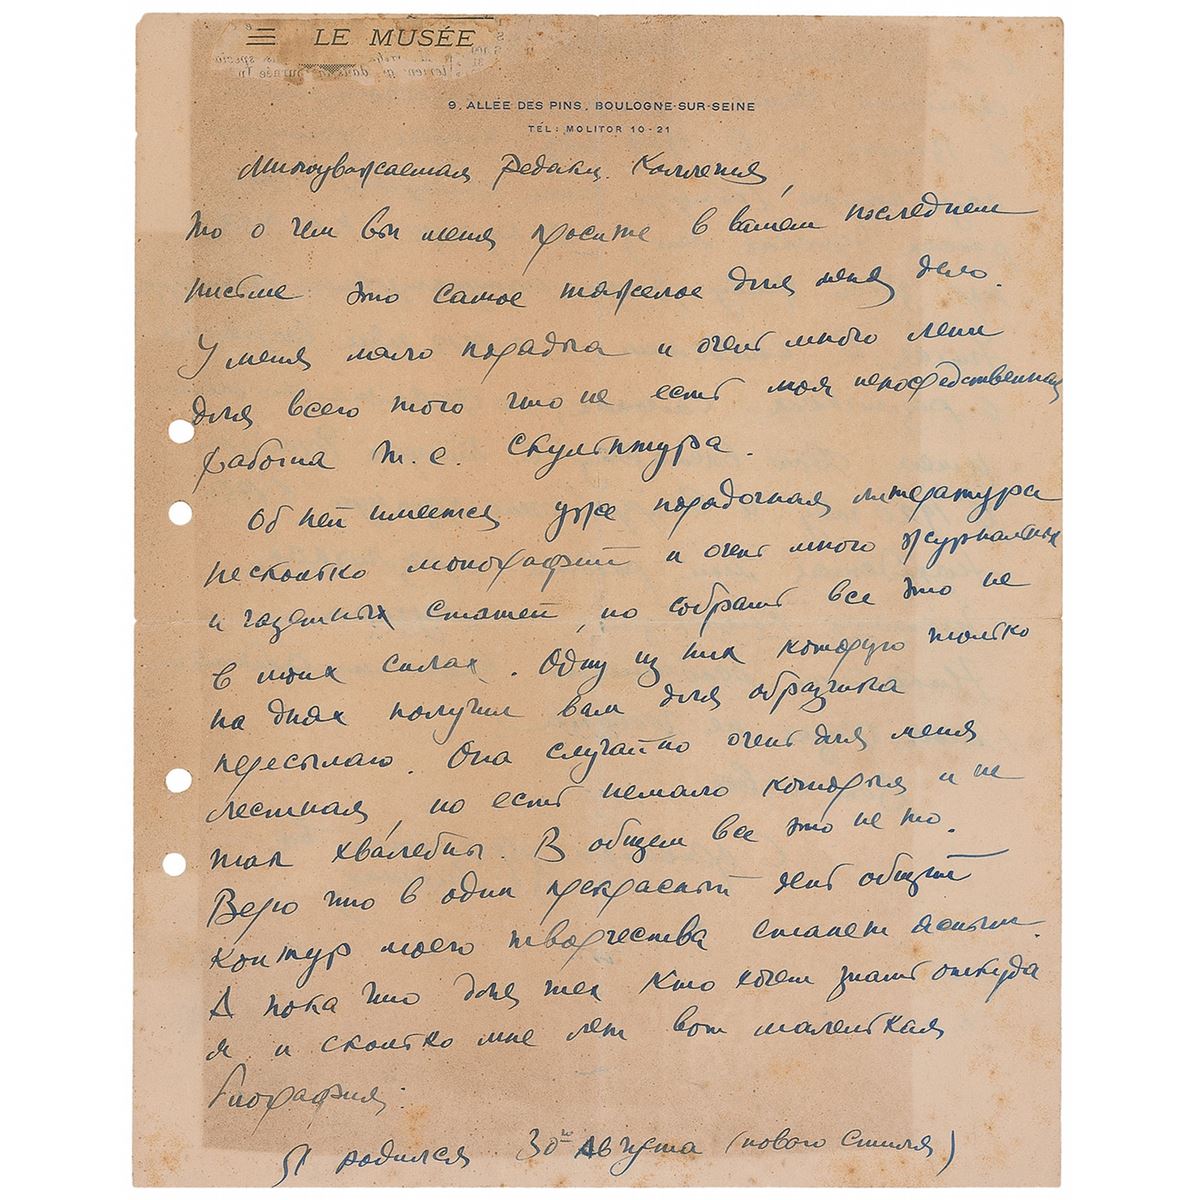 LE MUSÉE
9, ALLÉE DES PINS, BOULOGNE-SUR-SEINE
TÉL: MOLITOR 10-21
Многоуважаемая Редакц. Коллегия,
то о чем вы меня просите в вашем последнем
письме это самое тяжелое для меня дело.
У меня мало порядка и очень много лени
для всего того что не есть моя непосредственная
работа т. е. скульптура.
Об ней имеется уже порядочная литература
несколько монографий и очень много журнальных
и газетных статей, но собрать все это не
в моих силах. Одну из них которую только
на днях получил вам для образчика
пересылаю. Она случайно очень для меня
лестная, но есть немало которыя и не
так хвалебны. В общем все это не то.
Верю что в один прекрасный день общий
контур моего творчества станет ясным.
А пока что для тех кто хочет знать откуда
я и сколько мне лет вот маленькая
биография:
Я родился 30го Августа (нового стиля)